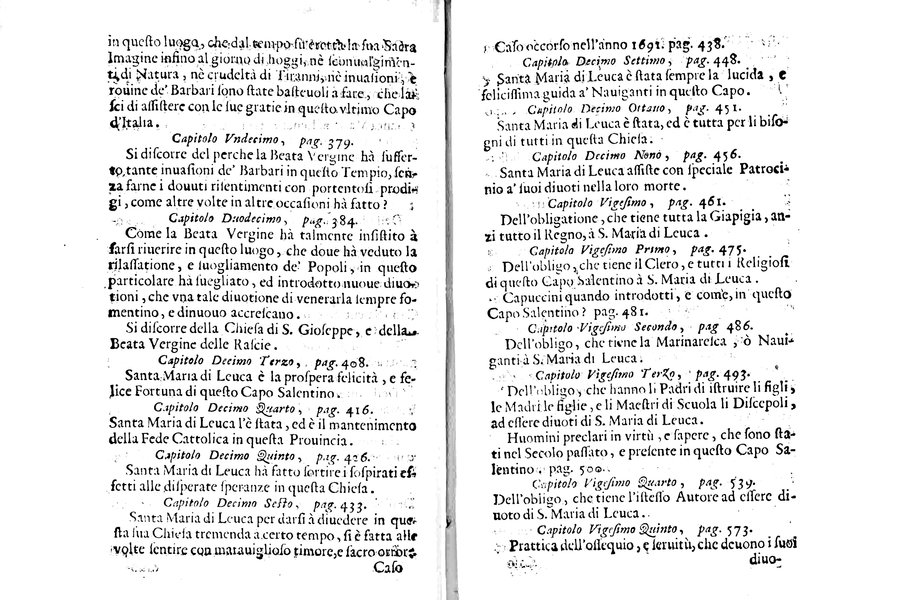 in questo luogo, che dal tempo fù eretta la sua Sacra
Imagine infino al giorno di hoggi, nè sconuolgimen-
ti di Natura, nè crudeltà di Tiranni, nè inuasioni, e
rouine de' Barbari sono state basteuoli a fare, che la-
sci di assistere con le sue gratie in questo vltimo Capo
d'Italia.
Capitolo Vndecimo, pag. 379.
Si discorre del perche la Beata Vergine hà suffer-
to, tante inuasioni de' Barbari in questo Tempio, sen-
za farne i douuti risentimenti con portentosi prodi-
gi, come altre volte in altre occasioni hà fatto?
Capitolo Duodecimo, pag. 384.
Come la Beata Vergine hà talmente insistito à
farsi riuerire in questo luogo, che doue hà veduto la
rilassatione, e suogliamento de' Popoli, in questo
particolare hà suegliato, ed introdotto nuoue diuo-
tioni, che vna tale diuotione di venerarla sempre fo-
mentino, e dinuouo accrescano.
Si discorre della Chiesa di S. Gioseppe, e della
Beata Vergine delle Rascie.
Capitolo Decimo Terzo, pag. 408.
Santa Maria di Leuca è la prospera felicità, e fe-
lice Fortuna di questo Capo Salentino.
Capitolo Decimo Quarto, pag. 416.
Santa Maria di Leuca l'è stata, ed è il mantenimento
della Fede Cattolica in questa Prouincia.
Capitolo Decimo Quinto, pag. 426.
Santa Maria di Leuca hà fatto sortire i sospirati ef-
fetti alle disperate speranze in questa Chiesa.
Capitolo Decimo Sesto, pag. 433.
Santa Maria di Leuca per darsi à diuedere in que-
sta sua Chiesa tremenda a certo tempo, si è fatta alle
volte sentire con marauiglioso timore, e sacro orrore.
Caso
Caso occorso nell'anno 1691. pag. 438.
Capitolo Decimo Settimo, pag. 448.
Santa Maria di Leuca è stata sempre la lucida, e
felicissima guida a' Nauiganti in questo Capo.
Capitolo Decimo Ottauo, pag. 451.
Santa Maria di Leuca è stata, ed è tutta per li biso-
gni di tutti in questa Chiesa.
Capitolo Decimo Nono, pag. 456.
Santa Maria di Leuca assiste con speciale Patroci-
nio a' suoi diuoti nella loro morte.
Capitolo Vigesimo, pag. 461.
Dell'obligatione, che tiene tutta la Giapigia, an-
zi tutto il Regno, à S. Maria di Leuca.
Capitolo Vigesimo Primo, pag. 475.
Dell'obligo, che tiene il Clero, e tutti i Religiosi
di questo Capo Salentino à S. Maria di Leuca.
Capuccini quando introdotti, e come, in questo
Capo Salentino? pag. 481.
Capitolo Vigesimo Secondo, pag 486.
Dell'obligo, che tiene la Marinaresca, ò Naui-
ganti à S. Maria di Leuca.
Capitolo Vigesimo Terzo, pag. 493.
Dell'obligo, che hanno li Padri di istruire li figli,
le Madri le figlie, e li Maestri di Scuola li Discepoli,
ad essere diuoti di S. Maria di Leuca.
Huomini preclari in virtù, e sapere, che sono sta-
ti nel Secolo passato, e presente in questo Capo Sa-
lentino. pag. 500.
Capitolo Vigesimo Quarto, pag. 539.
Dell'obligo, che tiene l'istesso Autore ad essere di-
uoto di S. Maria di Leuca.
Capitolo Vigesimo Quinto, pag. 573.
Prattica dell'ossequio, e seruitù, che deuono i suoi
diuo-